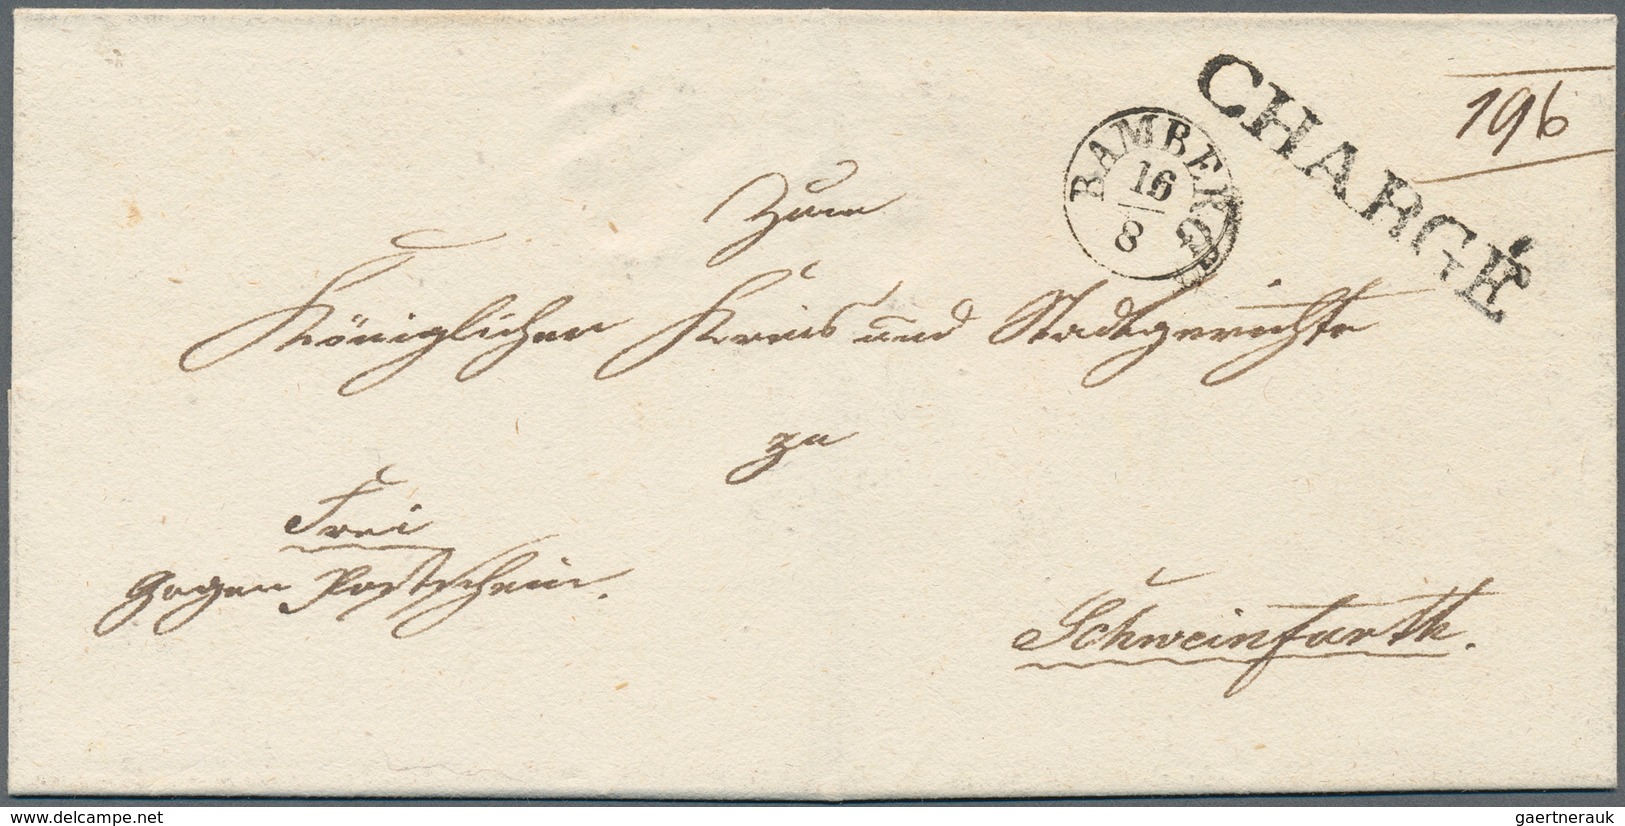 CHARGÉ
196
BAMBERG
16
8
Zum
Königlichen Kreis und Stadtgerichte
zu
Frei
gegen Postschein.
Schweinfurth.
www.delcampe.net
gaertnerauk